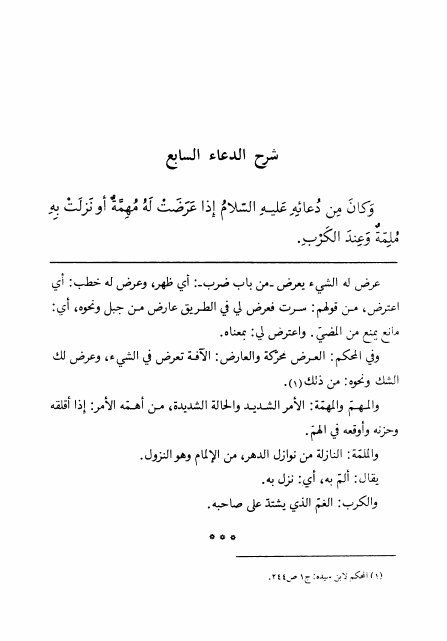 شرح الدعاء السابع
وَكانَ مِن دُعائِهِ عَليهِ السّلامُ إذا عَرَضَتْ لَهُ مُهِمَّةٌ أو نَزلَتْ بِهِ
مُلِمّةٌ وَعِندَ الكَرْبِ.
عرض له الشيء يعرض -من باب ضرب-: أي ظهر، وعرض له خطب: أي
اعترض، من قولهم: سرت فعرض لي في الطريق عارض من جبل ونحوه، أي:
مانع يمنع من المضيّ. واعترض لي: بمعناه.
وفي المحكم: العرض محرّكة والعارض: الآفة تعرض في الشيء، وعرض لك
الشك ونحوه: من ذلك(١).
والمهمّ والمهمّة: الأمر الشديد والحالة الشديدة، من أهمّه الأمر: إذا أقلقه
وحزنه وأوقعه في الهمّ.
والملمّة: النازلة من نوازل الدهر، من الإلمام وهو النزول.
يقال: ألمّ به، أي: نزل به.
والكرب: الغمّ الذي يشتدّ على صاحبه.
* * *
(١) المحكم لابن سيده: ج١ ص٢٤٤.